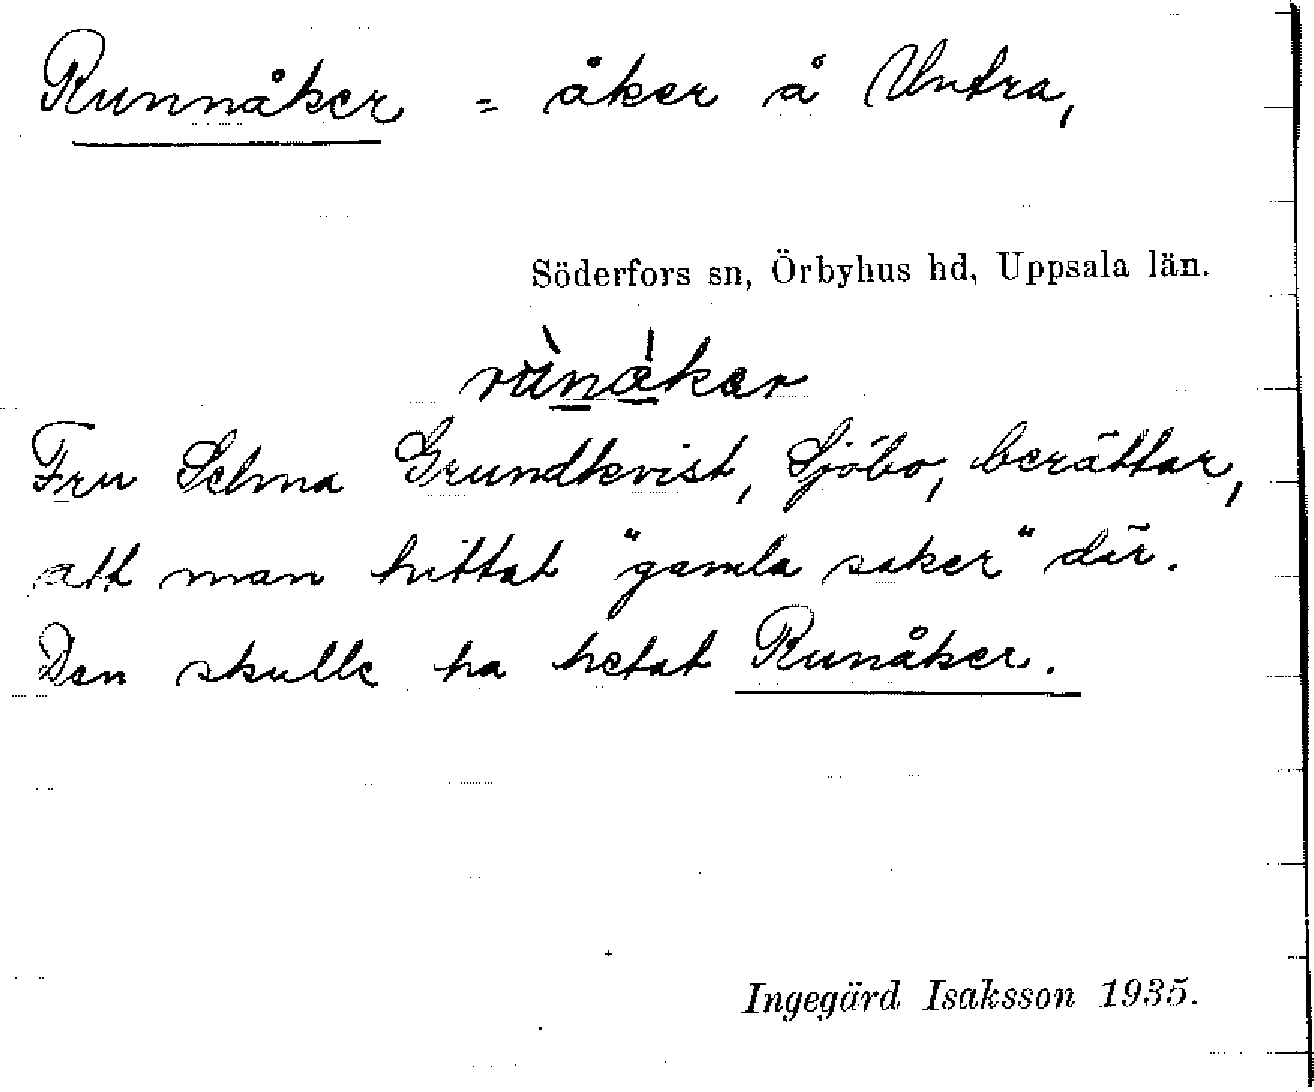 Runnåker = åker å Untra,
Söderfors sn, Örbyhus hd, Uppsala län.
Fru Selma Grundkvist, Sjöbo, berättar,
att man hittat "gamla saker" där.
Den skulle ha hetat Runåker.
Ingegärd Isaksson 1935.